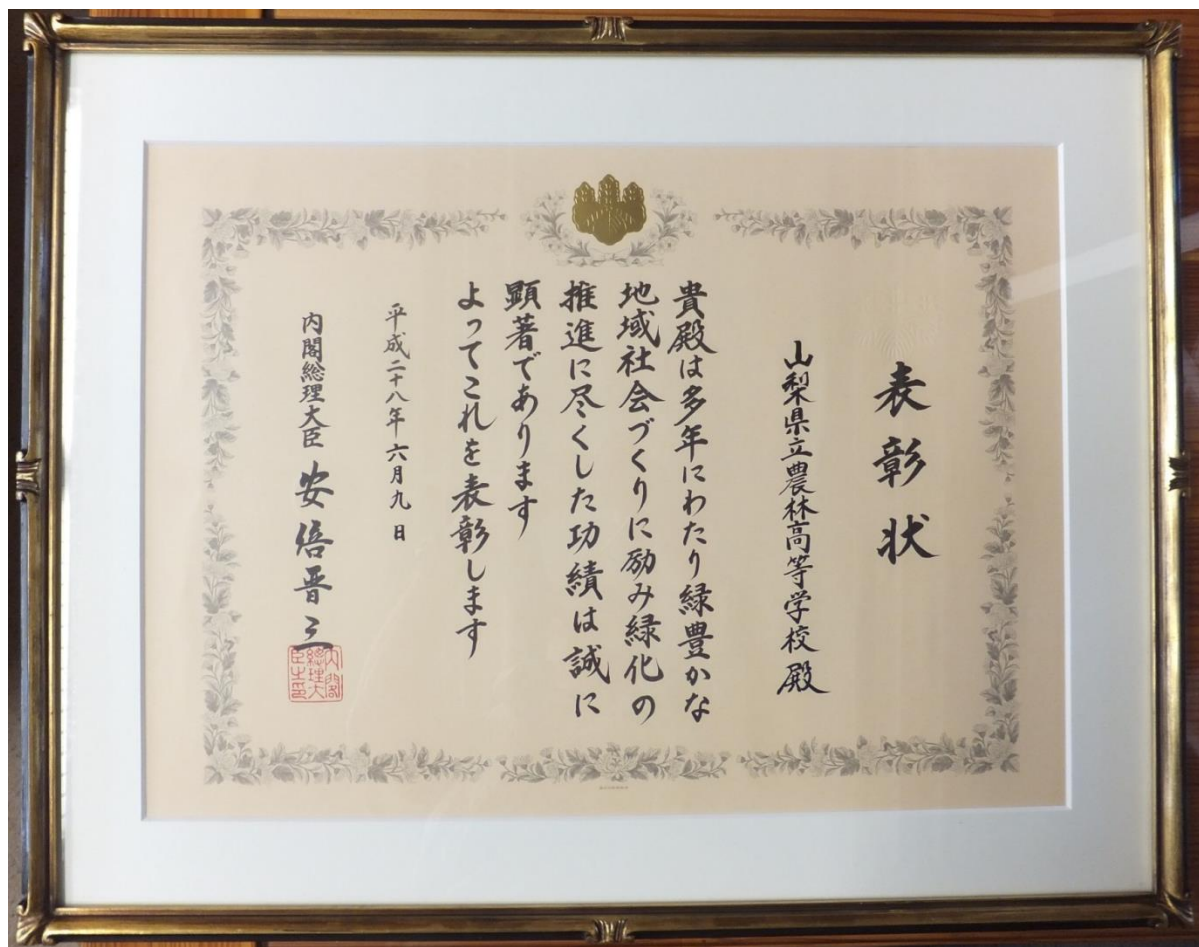 表彰状
山梨県立農林高等学校殿
貴殿は多年にわたり緑豊かな
地域社会づくりに励み緑化の
推進に尽くした功績は誠に
顕著であります
よってこれを表彰します
平成二十八年六月九日
内閣総理大臣 安倍晋三
内閣
總理大
臣之印